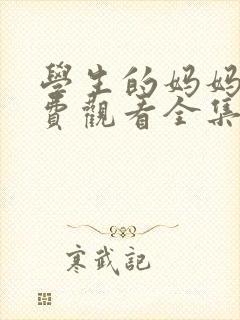 學生的妈妈
費觀看全集
寒武記